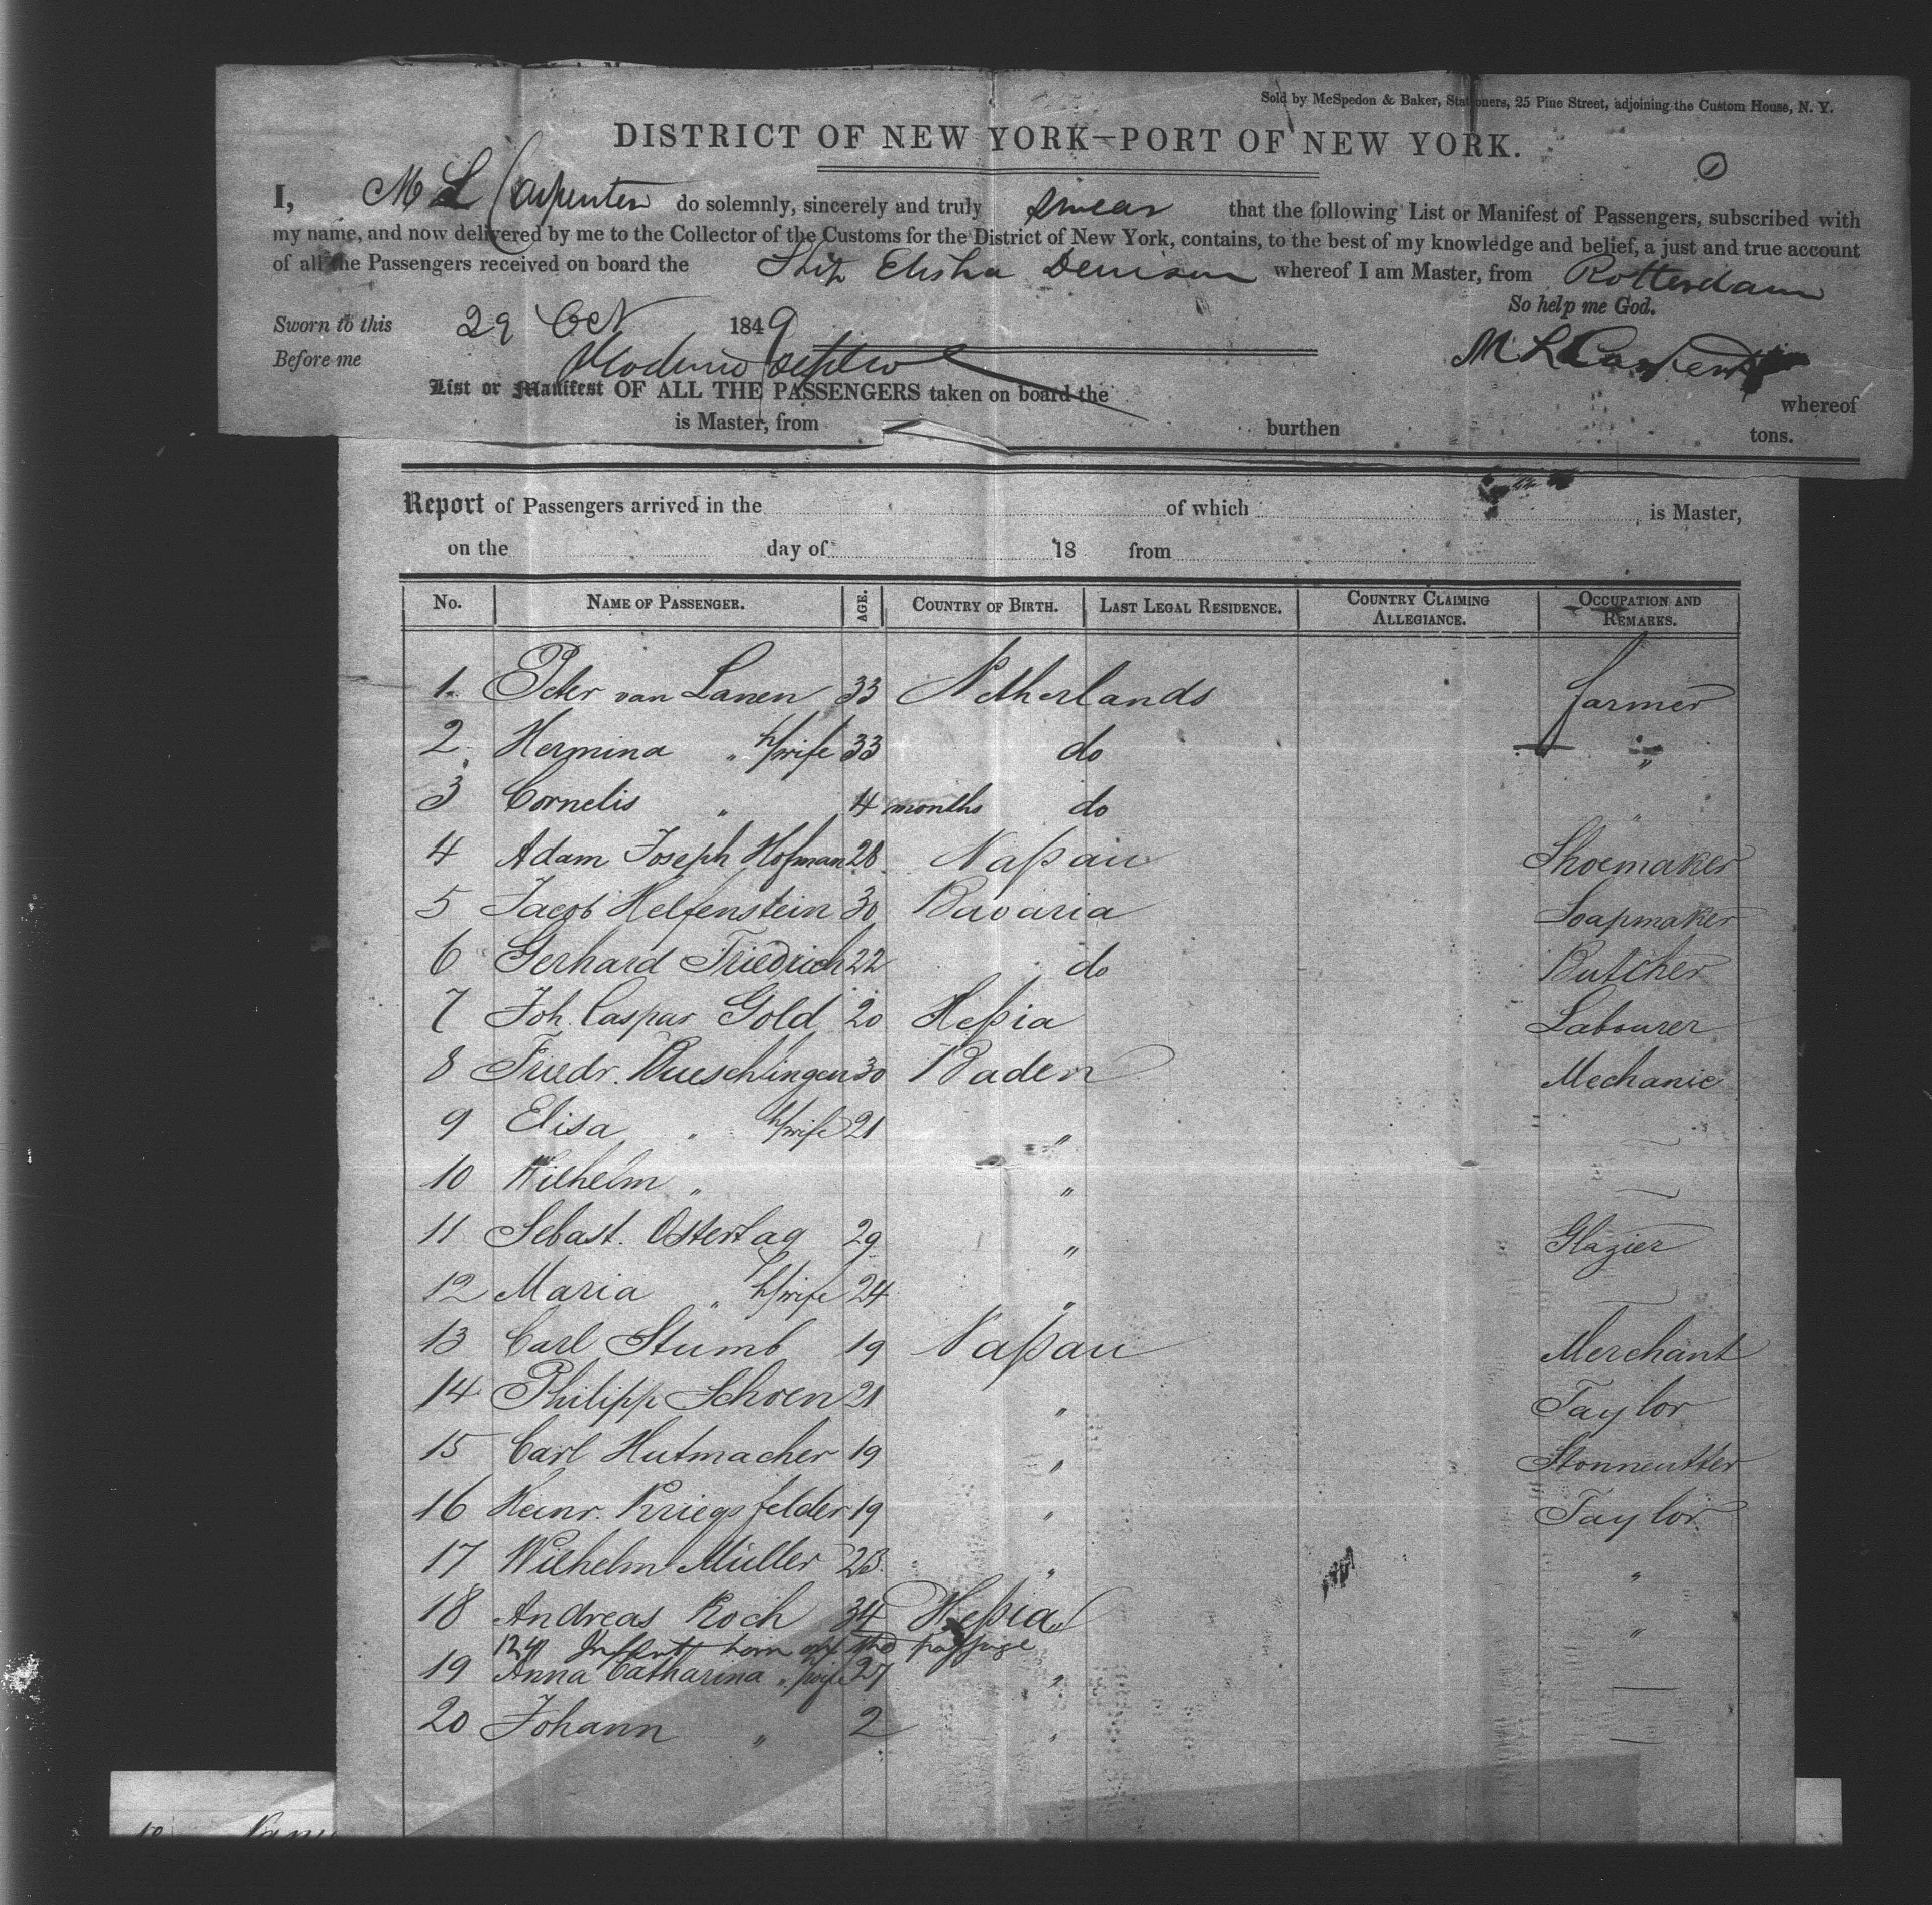 Sold by McSpedon & Baker, Stationers, 25 Pine Street, adjoining the Custom House, N. Y.
DISTRICT OF NEW YORK—PORT OF NEW YORK.
1
I, M L Carpenter do solemnly, sincerely and truly swear that the following List or Manifest of Passengers, subscribed with
my name, and now delivered by me to the Collector of the Customs for the District of New York, contains, to the best of my knowledge and belief, a just and true account
of all the Passengers received on board the Ship Elisha Denison whereof I am Master, from Rotterdam
So help me God.
Sworn to this 29 Oct 1849
Before me M L Carpenter
List or Manifest OF ALL THE PASSENGERS taken on board the whereof
is Master, from burthen tons.
Report of Passengers arrived in the of which is Master,
on the day of 18 from
No. NAME OF PASSENGER. AGE. COUNTRY OF BIRTH. LAST LEGAL RESIDENCE. COUNTRY CLAIMING ALLEGIANCE. OCCUPATION AND REMARKS.
1. Peter van Lanen 33 Netherlands farmer
2. Hermina " h/wife 33 do "
3 Cornelis " 4 months do "
4 Adam Joseph Hofman 28 Naßau Shoemaker
5 Jacob Helfenstein 30 Bavaria Soapmaker
6 Gerhard Friedrich 22 do Butcher
7 Joh. Caspar Gold 20 Heßia Labourer
8 Friedr. 30 Baden Mechanic
9 Elisa " h/wife 21 " —
10 Wilhelm " " —
11 Sebast. Ostertag 29 " Glazier
12 Maria " h/wife 24 " —
13 Carl Stumb 19 Naßau Merchant
14 Philipp Schoen 21 " Taylor
15 Carl Hutmacher 19 " Stonncutter
16 Heinr. Kriegsfelder 19 " Taylor
17 Wilhelm Müller 23 " "
18 Andreas Koch 34 Heßia "
124 Infant born on the paßage
19 Anna Catharina " h/wife 27 " —
20 Johann " 2 " —